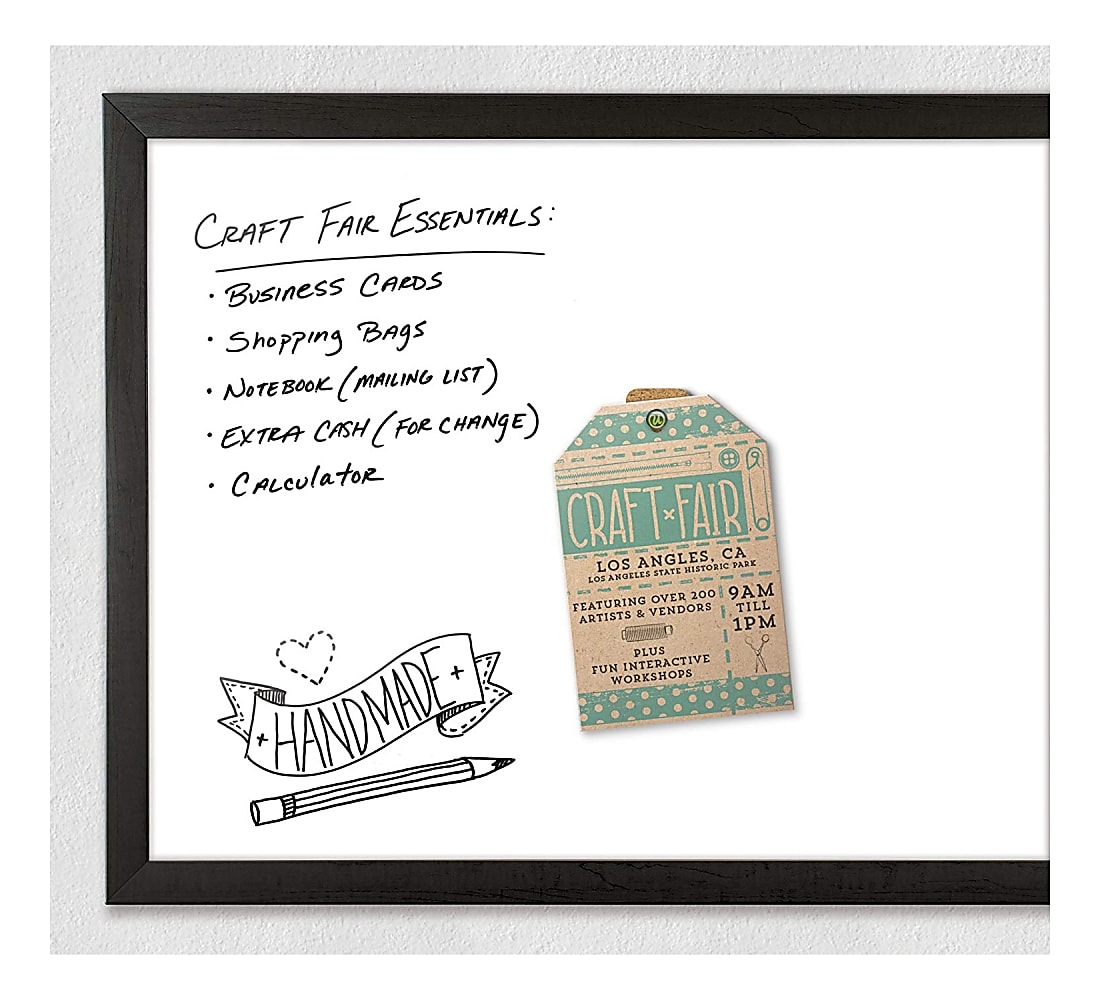 CRAFT FAIR ESSENTIALS:
• BUSINESS CARDS
• Shopping BAgs
• NOTEBOOK (MAILING LIST)
• EXTRA CASH (FOR CHANGE)
• CALCulatoR
+ HANDMADE +
u
CRAFT × FAIR
LOS ANGLES, CA
LOS ANGELES STATE HISTORIC PARK
FEATURING OVER 200
ARTISTS & VENDORS
PLUS
FUN INTERACTIVE
WORKSHOPS
9AM
TILL
1PM